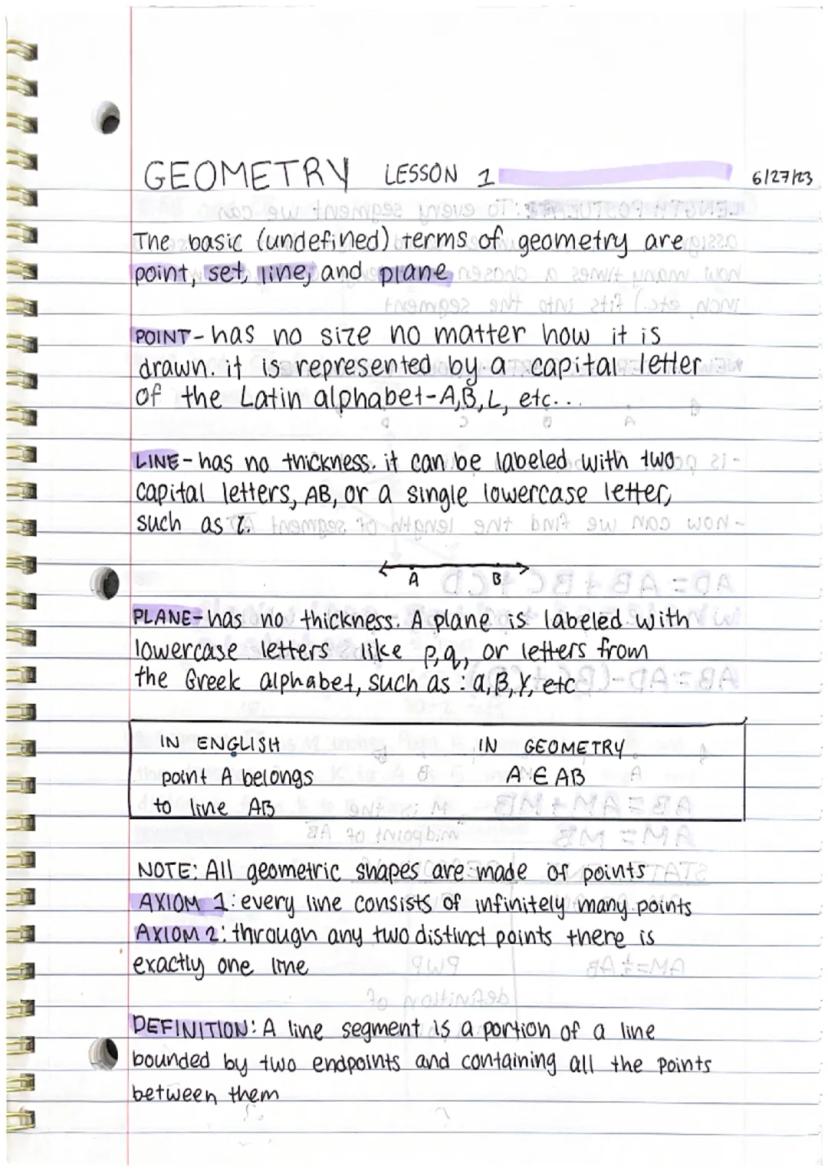 GEOMETRY LESSON 1 6/27/23
The basic (undefined) terms of geometry are
point, set, line, and plane
POINT - has no size no matter how it is
drawn. it is represented by a capital letter
of the Latin alphabet - A, B, L, etc...
LINE - has no thickness. it can be labeled with two
capital letters, AB, or a single lowercase letter,
such as l.
A B
PLANE - has no thickness. A plane is labeled with
lowercase letters like p, q, or letters from
the Greek alphabet, such as : α, β, γ, etc
IN ENGLISH IN GEOMETRY
point A belongs A ∈ AB
to line AB
NOTE: All geometric shapes are made of points
AXIOM 1: every line consists of infinitely many points
AXIOM 2: through any two distinct points there is
exactly one line
DEFINITION: A line segment is a portion of a line
bounded by two endpoints and containing all the points
between them